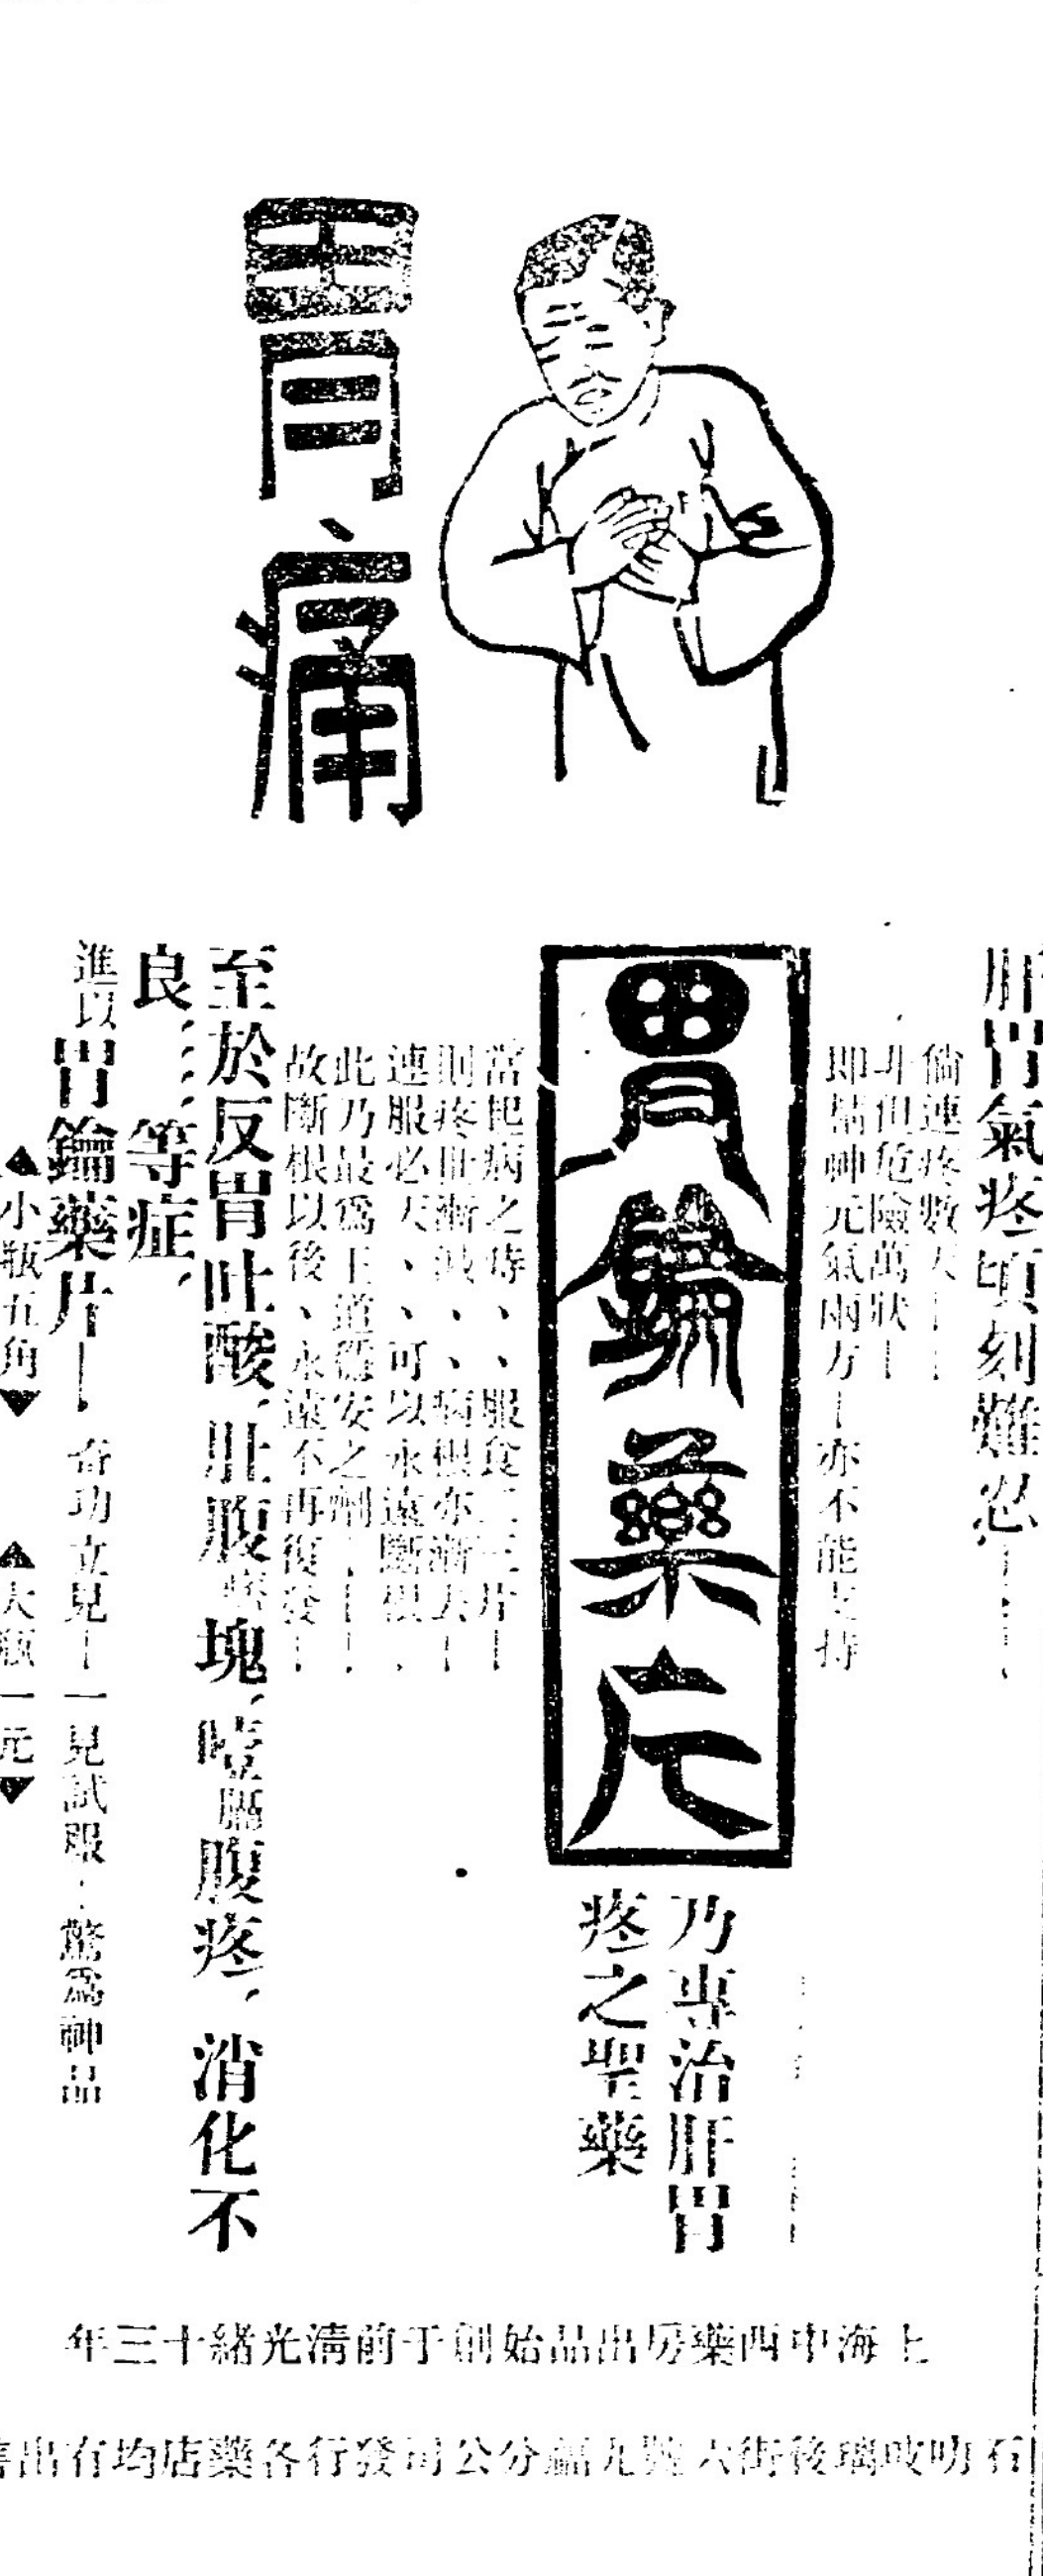 胃痛
肝胃氣疼頃刻難忍
倘連疼數天
非但危險萬狀
即精神元氣兩方—亦不能支持
胃鑰藥片
乃專治肝胃
疼之聖藥
當起病之時、、、服食二三片—
則疼肚漸減、、、病根亦漸去—
連服必天、、、可以永遠斷根
此乃最爲王道 安之劑
故斷根以後、永遠不再復發—
至於反胃吐酸，肚腹 塊，噎膈腹疼，消化不
良……等症，
進以胃鑰藥片— 奇功立見—一見試服 驚爲神品
▲小瓶五角▼ ▲大瓶一元▼
上海中西藥房出品始創于前清光緒十三年
石叻 璃後街六號九福分公司發行各藥店均有出售